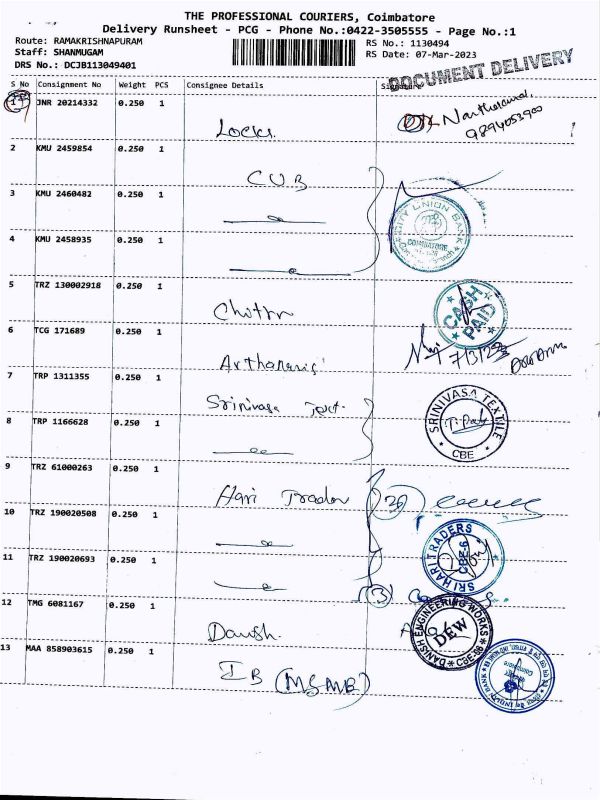 THE PROFESSIONAL COURIERS, Coimbatore
Delivery Runsheet - PCG - Phone No.:0422-3505555 - Page No.:1
Route: RAMAKRISHNAPURAM
RS No.: 1130494
Staff: SHANMUGAM
RS Date: 07-Mar-2023
DRS No.: DCJB113049401
DOCUMENT DELIVERY
S No Consignment No Weight PCS Consignee Details Signature
JNR 20214332 0.250 1
9894053900
2 KMU 2459854 0.250 1 CUB
3 KMU 2460482 0.250 1
CITY UNION BANK
COIMBATORE
4 KMU 2458935 0.250 1
5 TRZ 130002918 0.250 1
CASH PAID
6 TCG 171689 0.250 1
7/3/23
7 TRP 1311355 0.250 1 Srinivasa Text.
SRINIVASA TEXTILE
CBE
8 TRP 1166628 0.250 1
9 TRZ 61000263 0.250 1 Hari Trader
10 TRZ 190020508 0.250 1
SRI HARI TRADERS
CBE-6
11 TRZ 190020693 0.250 1
(3)
12 TMG 6081167 0.250 1 Danish.
DANISH ENGINEERING WORKS
DEW
CBE-06
13 MAA 858903615 0.250 1 IB (MSME)
INDIAN BANK